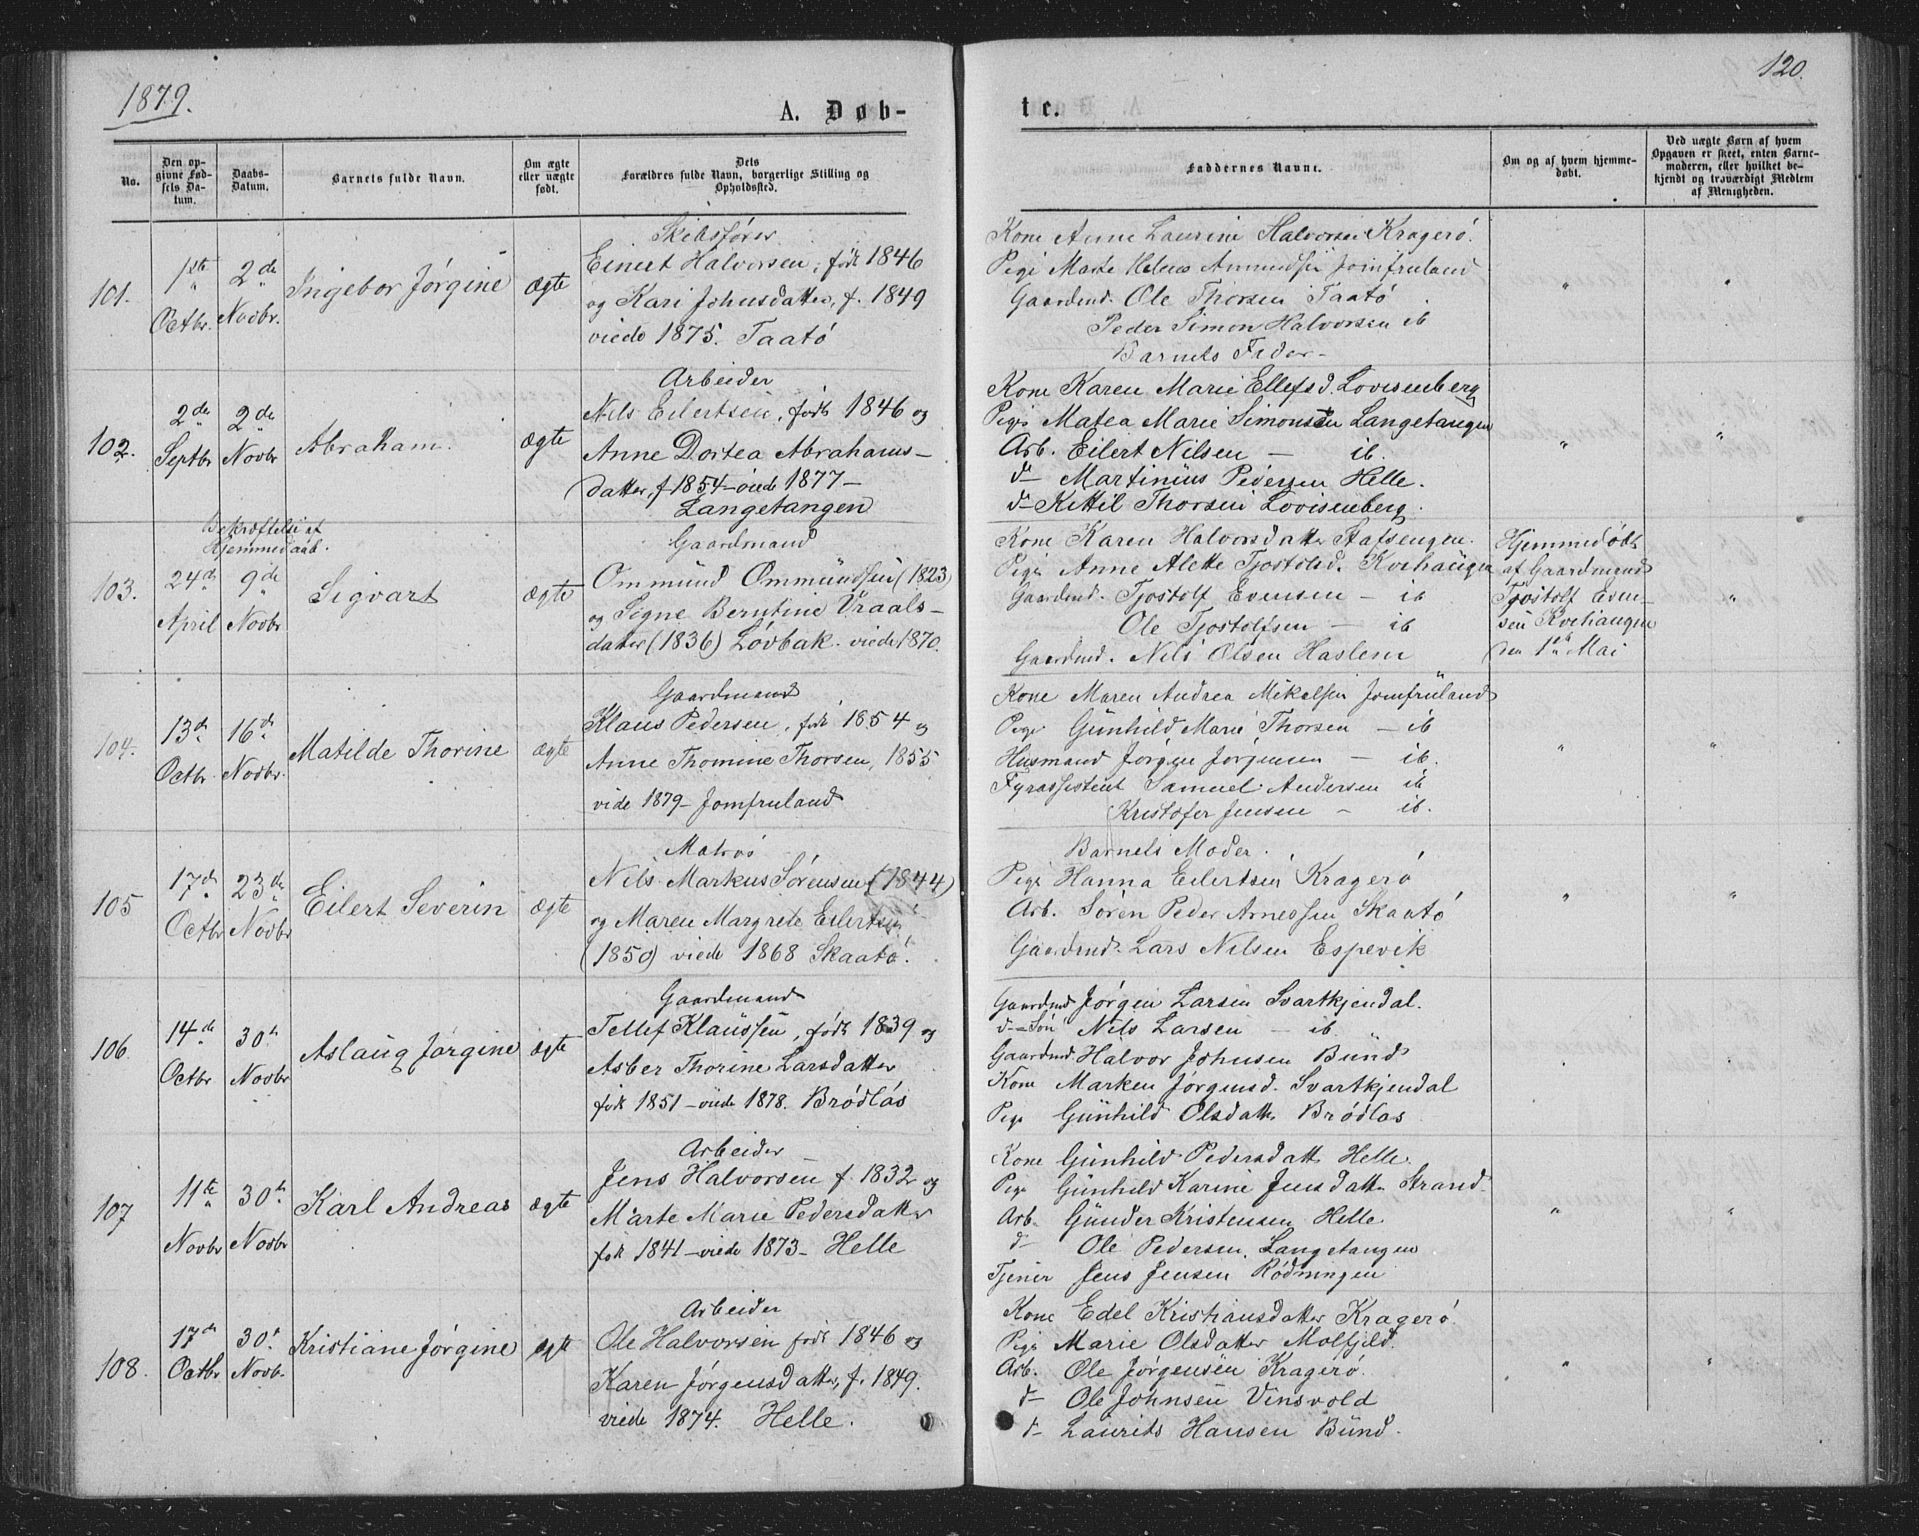 1879.
120.
A. Døb-
te.
No.
Den op-
givne Fød-
sels Da-
tum.
Daabs-
Datum.
Barnets fulde Navn.
Om ægte
eller uægte
født.
Dets
Forældres fulde Navn, borgerlige Stilling og
Opholdssted.
Faddernes Navne.
Om og af hvem hjemme-
døbt.
Ved uægte Børn af hvem
Opgaven er skeet, enten Barne-
moderen, eller hvilket be-
kjendt og troværdigt Medlem
af Menigheden.
101.
1ste
Octbr.
2de
Novbr.
Ingebor Jørgine
ægte
Skibsfører
Einert Halvorsen, født 1846
og Kari Johnsdatter, f. 1849
viede 1875. Taatö
Kone Anne Laurine Halvorsen Kragerö.
Pige Marte Helene Ammundsen Jomfruland
Gaardmd. Ole Thorsen Taatö
Peder Simon Halvorsen ib
Barnets Fader -
"
"
102.
2de
Septbr
2de
Novbr
Abraham.
ægte
Arbeider
Nils Eilertsen, født 1846 og
Anne Dortea Abrahams-
datter, f 1854 - viede 1877 -
Langetangen
Kone Karen Marie Ellefsd. Lovisenberg
Pige Matea Marie Simonsen Langetangen
Arb. Eilert Nilsen - ib.
d- Martinius Pedersen Helle.
d- Kittil Thorsen Lovisenberg.
"
"
Bekræftelse af
Hjemmedaab.
103.
24de
April
9de
Novbr
Sigvart
ægte
Gaardmand
Ommund Ommundsen (1823)
og Signe Berntine Vraals-
datter (1836) Lövbak. viede 1870.
Kone Karen Halvorsdatter Stafsengen.
Pige Anne Alette Tjostolsd. Kvihaugen
Gaardmd. Tjostolf Evensen - ib
Ole Tjostolfsen - ib
Gaardmd. Nils Olsen Haslem
Hjemmedøbt
af Gaardmand
Tjostolf Even-
sen Kvihaugen
den 1ste Mai
"
104.
13de
Octbr
16de
Novbr.
Matilde Thorine
ægte
Gaardmand
Klaus Pedersen, født 1854 og
Anne Thomine Thorsen, 1855
vide 1879 - Jomfruland
Kone Maren Andrea Mikelsen Jomfruland
Pige Gunhild Marie Thorsen - ib
Husmand Jørgen Jørgensen - ib.
Fyrassistent Samuel Andersen ib
Kristofer Jensen - ib.
"
"
105
17de
Octbr
23de
Novbr
Eilert Severin
ægte
Matros
Nils Markus Sörensen (1844)
og Maren Margrete Eilertsen
(1850) viede 1868 Skaatö.
Barnets Moder.
Pige Hanna Eilertsen Kragerö
Arb. Sören Peder Arnessen Skaatö
Gaardmd. Lars Nilsen Espevik
"
"
106.
14de
Octbr
30te
Novbr
Aslaug Jørgine
ægte
Gaardmand
Tellef Klaussen, født 1839 og
Asber Thorine Larsdatter
født 1851 - viede 1878. Brödlös
Gaardmd Jørgen Larsen Svartkjendal.
d- Søn Nils Larsen - ib.
Gaardmd Halvor Johnsen Bund
Kone Marken Jørgensd. Svartkjendal
Pige Gunhild Olsdatter Brödlös
107
11te
Novbr
30te
Novbr
Karl Andreas
ægte
Arbeider
Jens Halvorsen f. 1832 og
Marte Marie Pedersdatter
født 1841 - viede 1873 - Helle
Kone Gunhild Pedersdatt Helle.
Pige Gunhild Karine Jensdatter Strand
Arb. Gunder Kristensen Helle
d- Ole Pedersen Langetangen
Tjener Jens Jensen Rödningen
"
"
108.
17de
Octbr
30te
Novb.
Kristiane Jørgine
ægte
Arbeider
Ole Halvorsen født 1846 og
Karen Jørgensdatter, f. 1849.
viede 1874. Helle.
Kone Edel Kristiansdatter Kragerö.
Pige Marie Olsdatter Molfjeld.
Arb. Ole Jørgensen Kragerö.
d- Ole Johnsen Vinsvold
d- Laurits Hansen Bund.
"
"